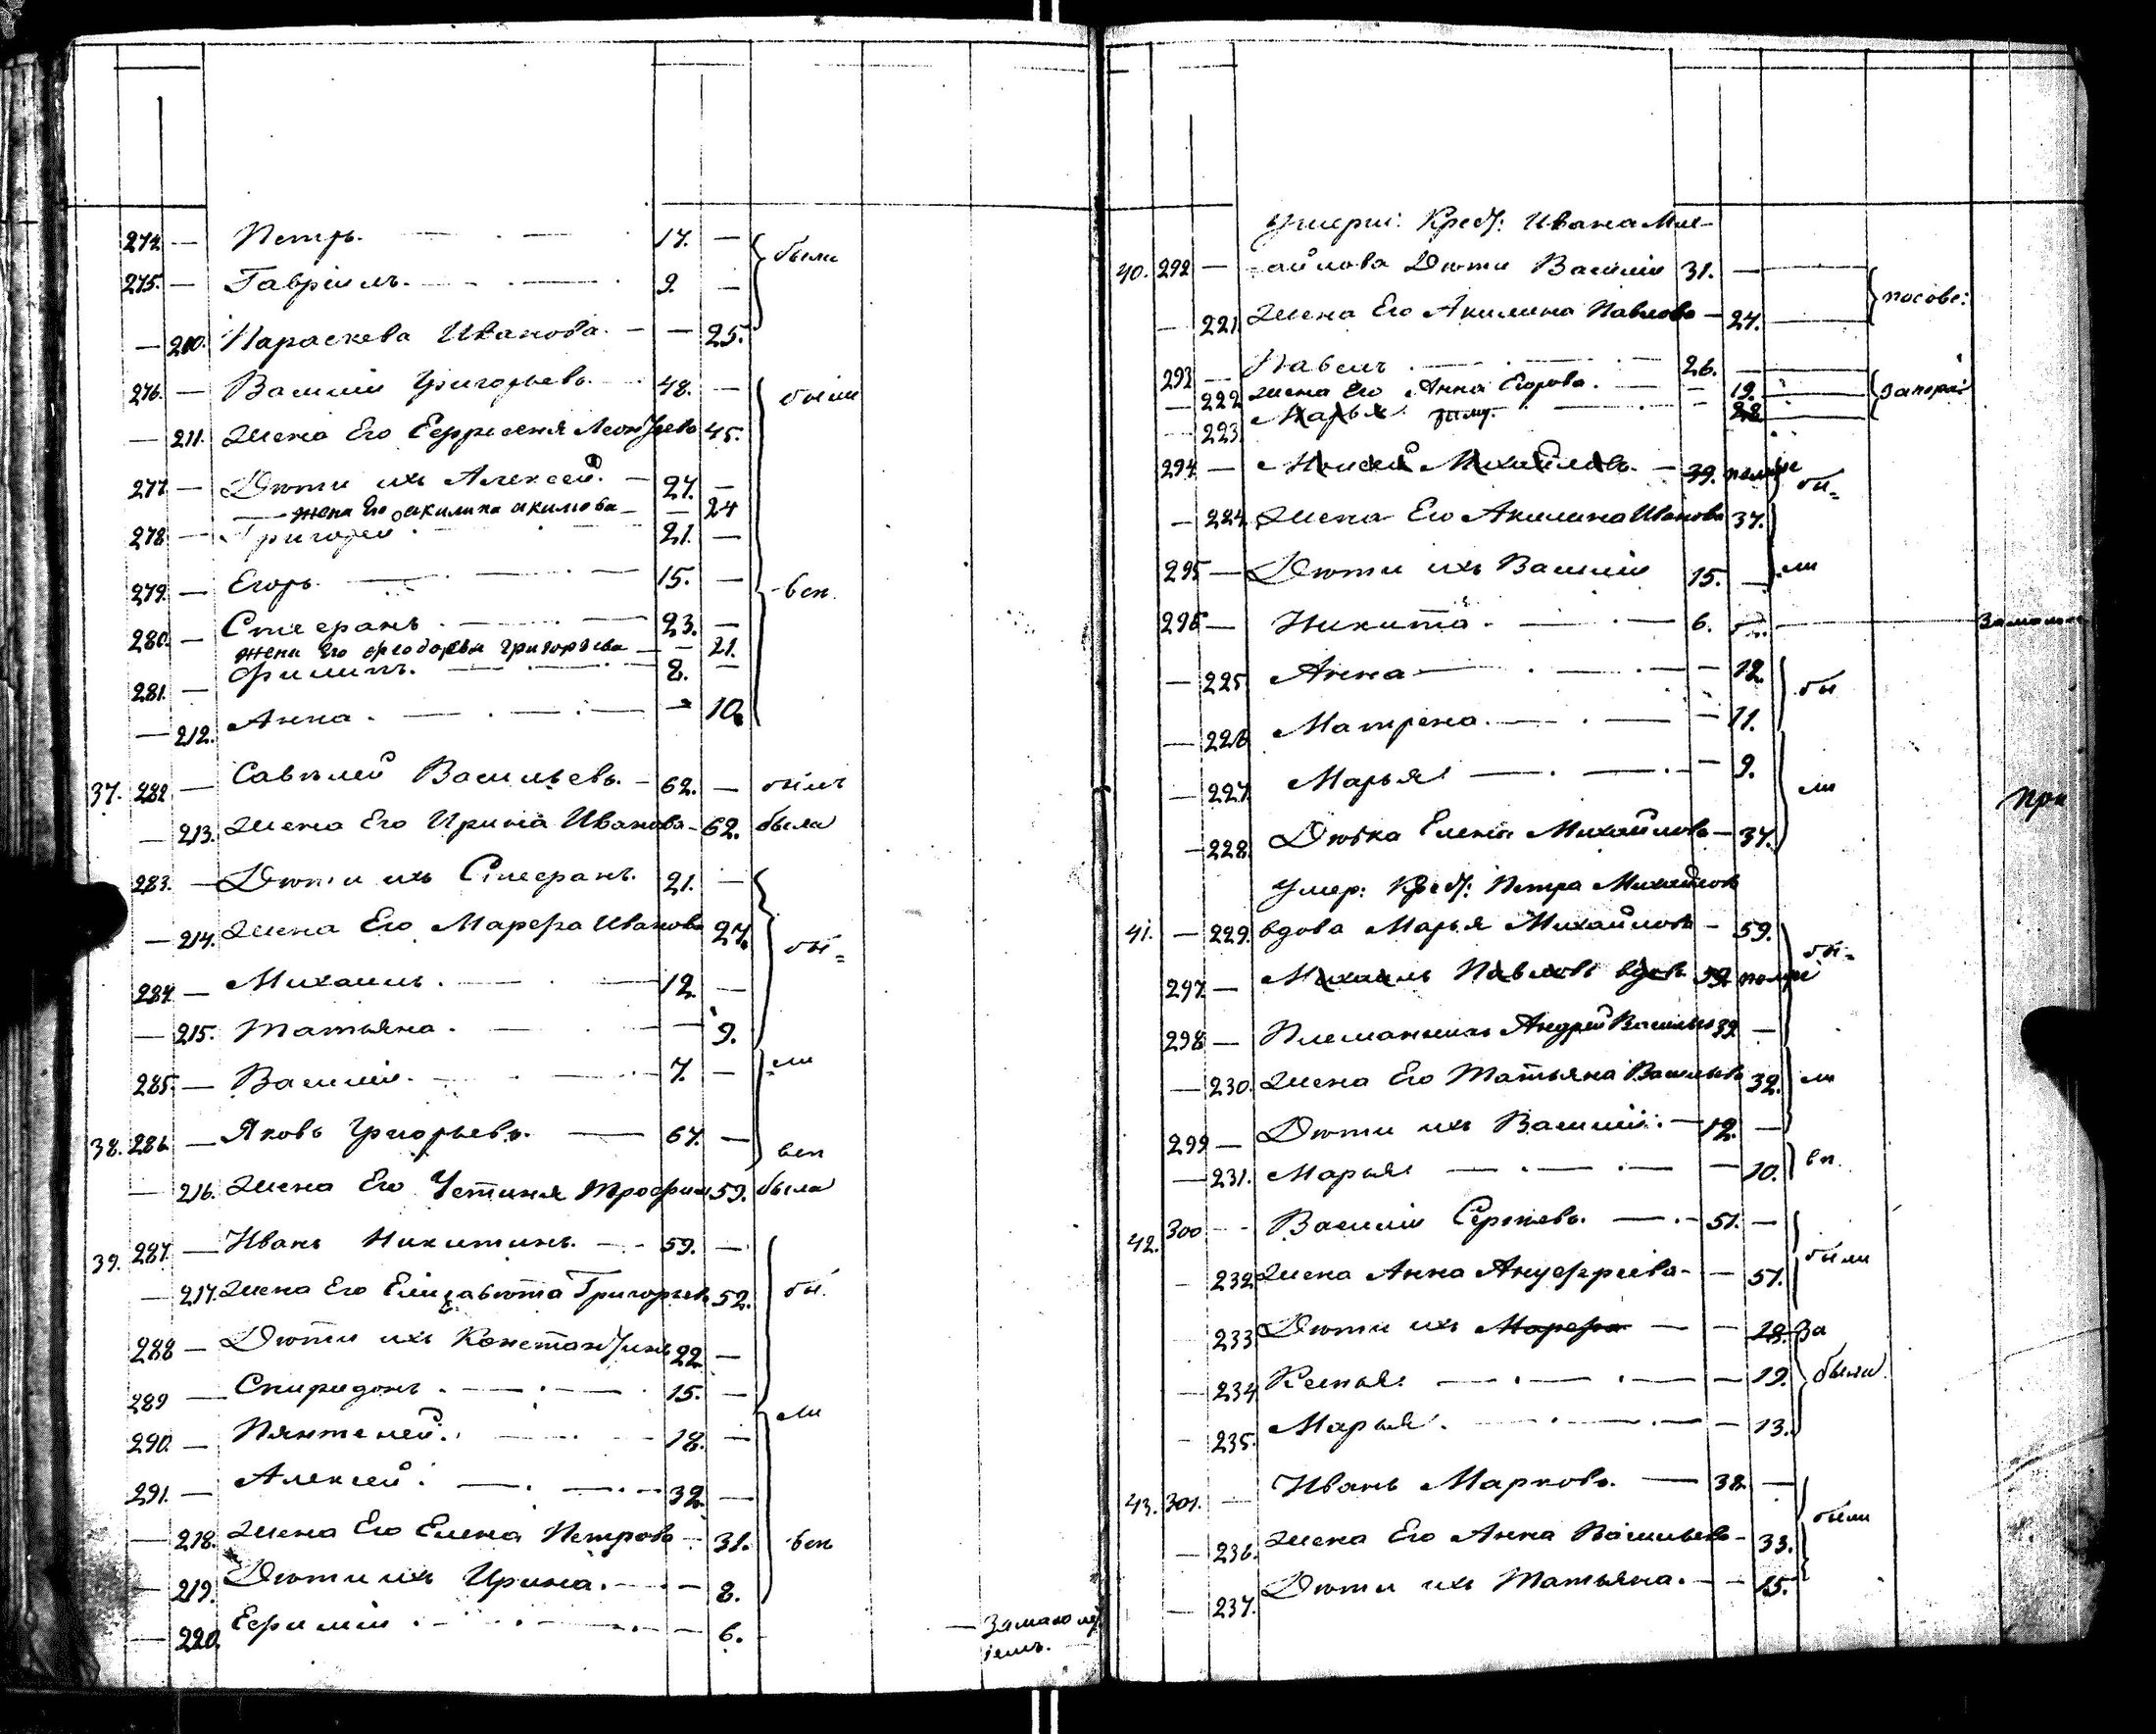 274. — Петръ. — 17. — были
275. — Гавріилъ. — 9. —
— 210. Параскева Иванова. — — 25.
276. — Василій Григорьевъ. 48. — были
— 211. Жена Его Ефросенія Леонтьева 45.
277 — Дѣти ихъ Алексей. — 27. —
— жена Его акилина акимова — — 24
278 — Григорей — 21. —
279. — Егоръ. — 15. — вси.
280. — Стефанъ. — 23. —
жена Его феодосья григорьева — — 21.
281. — Филипъ. — 8. —
— 212. Анна. — — 10.
37. 282 — Савѣлей Васильевъ. — 62. — былъ
— 213. Жена Его Ирина Иванова — 62. была
283. — Дѣти ихъ Стефанъ. 21. —
— 214. Жена Его Марфа Иванова 27. бы=
284 — Михаилъ. — 12. —
— 215. Татьяна. — — 9.
285. — Василій. — 7. — ли
38. 286. — Яковъ Григорьевъ. — 67. — вси
— 216. Жена Его Устинья Трофим 59. была
39. 287. — Иванъ Никитинъ. — 59. —
— 217. Жена Его Елизавѣта Григорьева 52. бы.
288 — Дѣти ихъ Константинъ 22 —
289 — Спиридонъ. — 15. —
290. — Пянтелей. — 18. — ли
291. — Алексей. — 32. —
— 218. Жена Его Елена Петрова — 31. вси
— 219. Дѣти ихъ Ирина. — — 8.
— 220. Ефимія. — — 6. — Замалолѣт
іемъ.
Умерш: Крест: Ивана Мих-
40. 292 — айлова Дѣти Василій 31. —
— 221. Жена Его Акилина Павлова — 24. посове:
293 — Павелъ — 26. —
— 222 жена Его Анна Егорова. — — 19. Запора:
— 223. Марья — — 22
294 — Михайловъ. — 39. помре бы=
— 224. Жена Его Акилина Иванова 37.
295 — Дѣти ихъ Василій 15. — ли
296 — Никита. — 6. — Замалол
— 225. Анна — — 12. бы
— 226. Матрена. — — 11.
— 227. Марья — — 9. ли
При
— 228. Дѣвка Елена Михайлова — 37.
Умер: Крест: Петра Михайлова
41. — 229. вдова Марья Михайлова — 59. бы=
297. — Михаилъ Павловъ вдовъ 52 помре
298 — Племянникъ Андрей Васильев 32 —
— 230. Жена Его Татьяна Васильева 32. ли
299 — Дѣти ихъ Василій. — 12. —
— 231. Марья — — 10. вси.
42. 300 — Василій Сергѣевъ. — 51. —
— 232 Жена Анна Ануфріева — — 51. были
233 Дѣти ихъ Марфа — — 28. За
— 234. Ксенья. — — 19. были
— 235. Марья. — — 13.
43. 301. — Иванъ Марковъ. — 38. —
— 236. Жена Его Анна Васильева — 33. были
— 237. Дѣти ихъ Татьяна. — — 15.